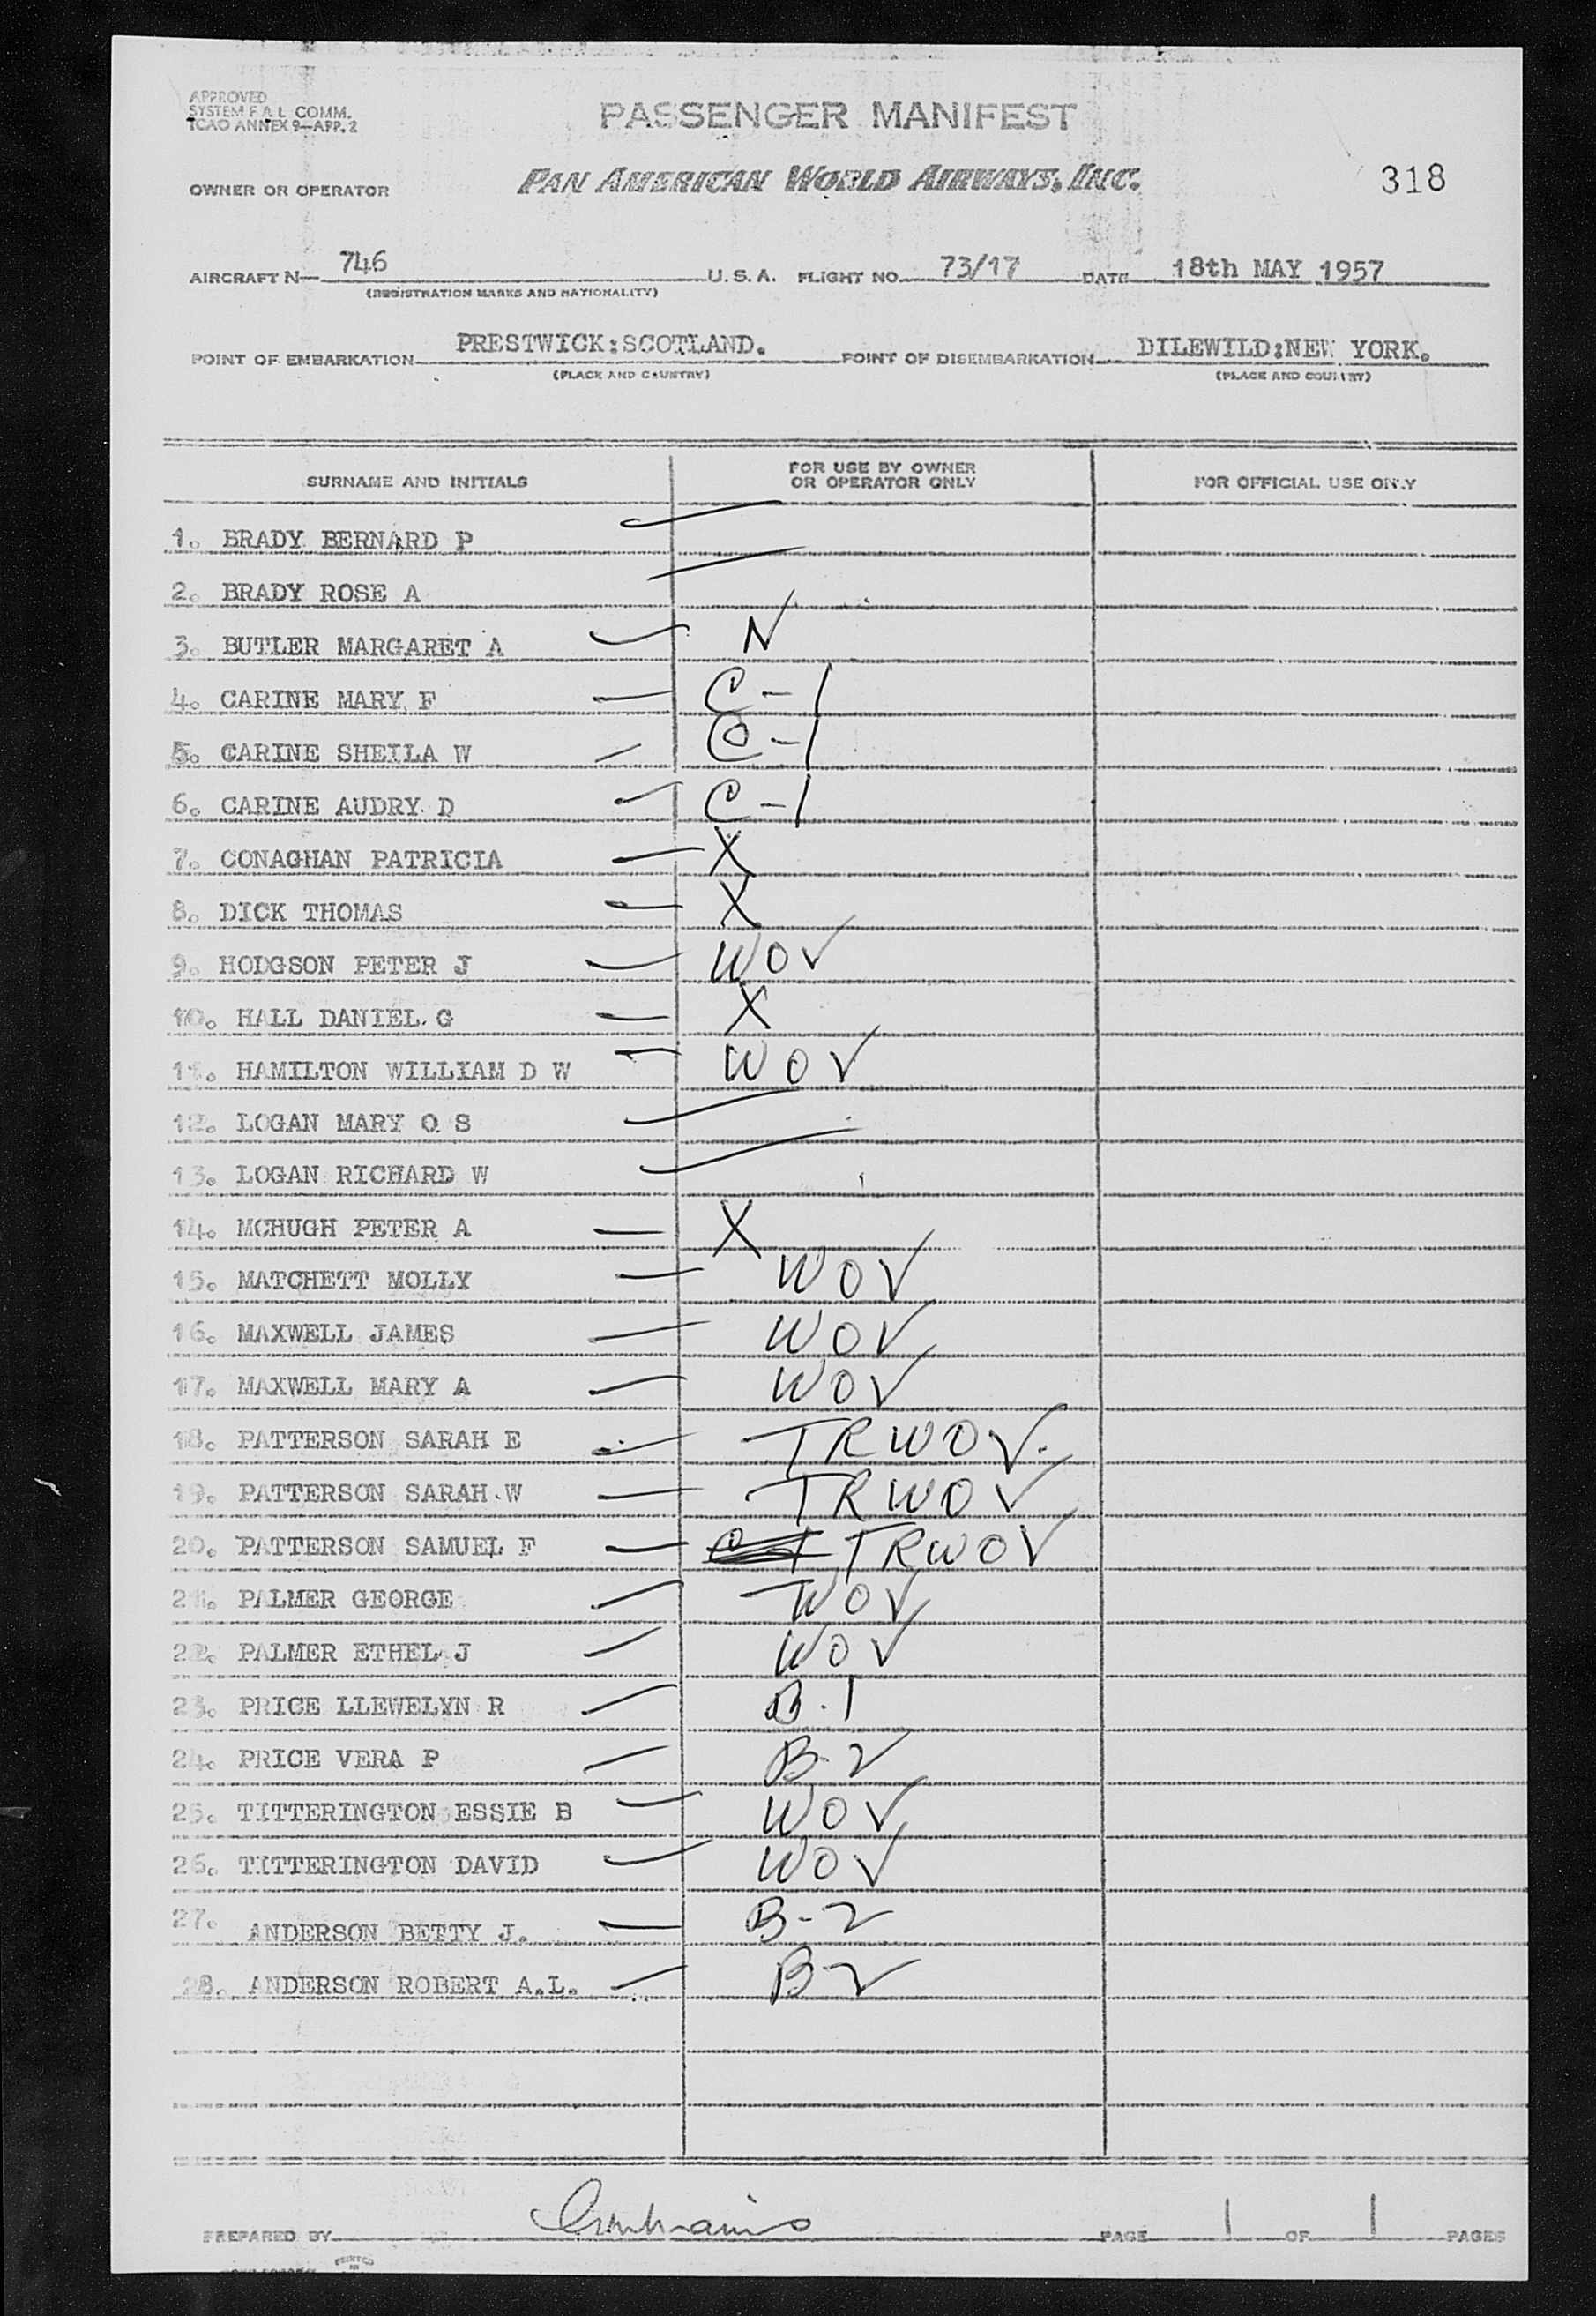 APPROVED
SYSTEM F A L COMM.
ICAO ANNEX 9—APP. 2
PASSENGER MANIFEST
OWNER OR OPERATOR PAN AMERICAN WORLD AIRWAYS, INC. 318
AIRCRAFT N— 746 U. S. A. FLIGHT NO. 73/17 DATE 18th MAY 1957
(REGISTRATION MARKS AND NATIONALITY)
POINT OF EMBARKATION PRESTWICK:SCOTLAND. POINT OF DISEMBARKATION DILEWILD:NEW YORK.
(PLACE AND COUNTRY) (PLACE AND COUNTRY)
SURNAME AND INITIALS FOR USE BY OWNER OR OPERATOR ONLY FOR OFFICIAL USE ONLY
1. BRADY BERNARD P
2. BRADY ROSE A
3. BUTLER MARGARET A N
4. CARINE MARY F C-1
5. CARINE SHEILA W C-1
6. CARINE AUDRY D C-1
7. CONAGHAN PATRICIA X
8. DICK THOMAS X
9. HODGSON PETER J WO✓
10. HALL DANIEL G X
11. HAMILTON WILLIAM D W WO✓
12. LOGAN MARY O S
13. LOGAN RICHARD W
14. MCHUGH PETER A X
15. MATCHETT MOLLY WO✓
16. MAXWELL JAMES WO✓
17. MAXWELL MARY A WO✓
18. PATTERSON SARAH E TRWO✓
19. PATTERSON SARAH W TRWO✓
20. PATTERSON SAMUEL F TRWO✓
21. PALMER GEORGE WO✓
22. PALMER ETHEL J WO✓
23. PRICE LLEWELYN R B-1
24. PRICE VERA P B-2
25. TITTERINGTON ESSIE B WO✓
26. TITTERINGTON DAVID WO✓
27. ANDERSON BETTY J. B-2
28. ANDERSON ROBERT A.L. B-2
PREPARED BY PAGE 1 OF 1 PAGES
PRINTED
IN